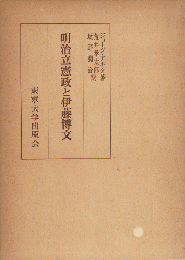 ジョージ・アキタ著
荒井孝太郎
坂野潤治 訳
明治立憲政と伊藤博文
東京大学出版会